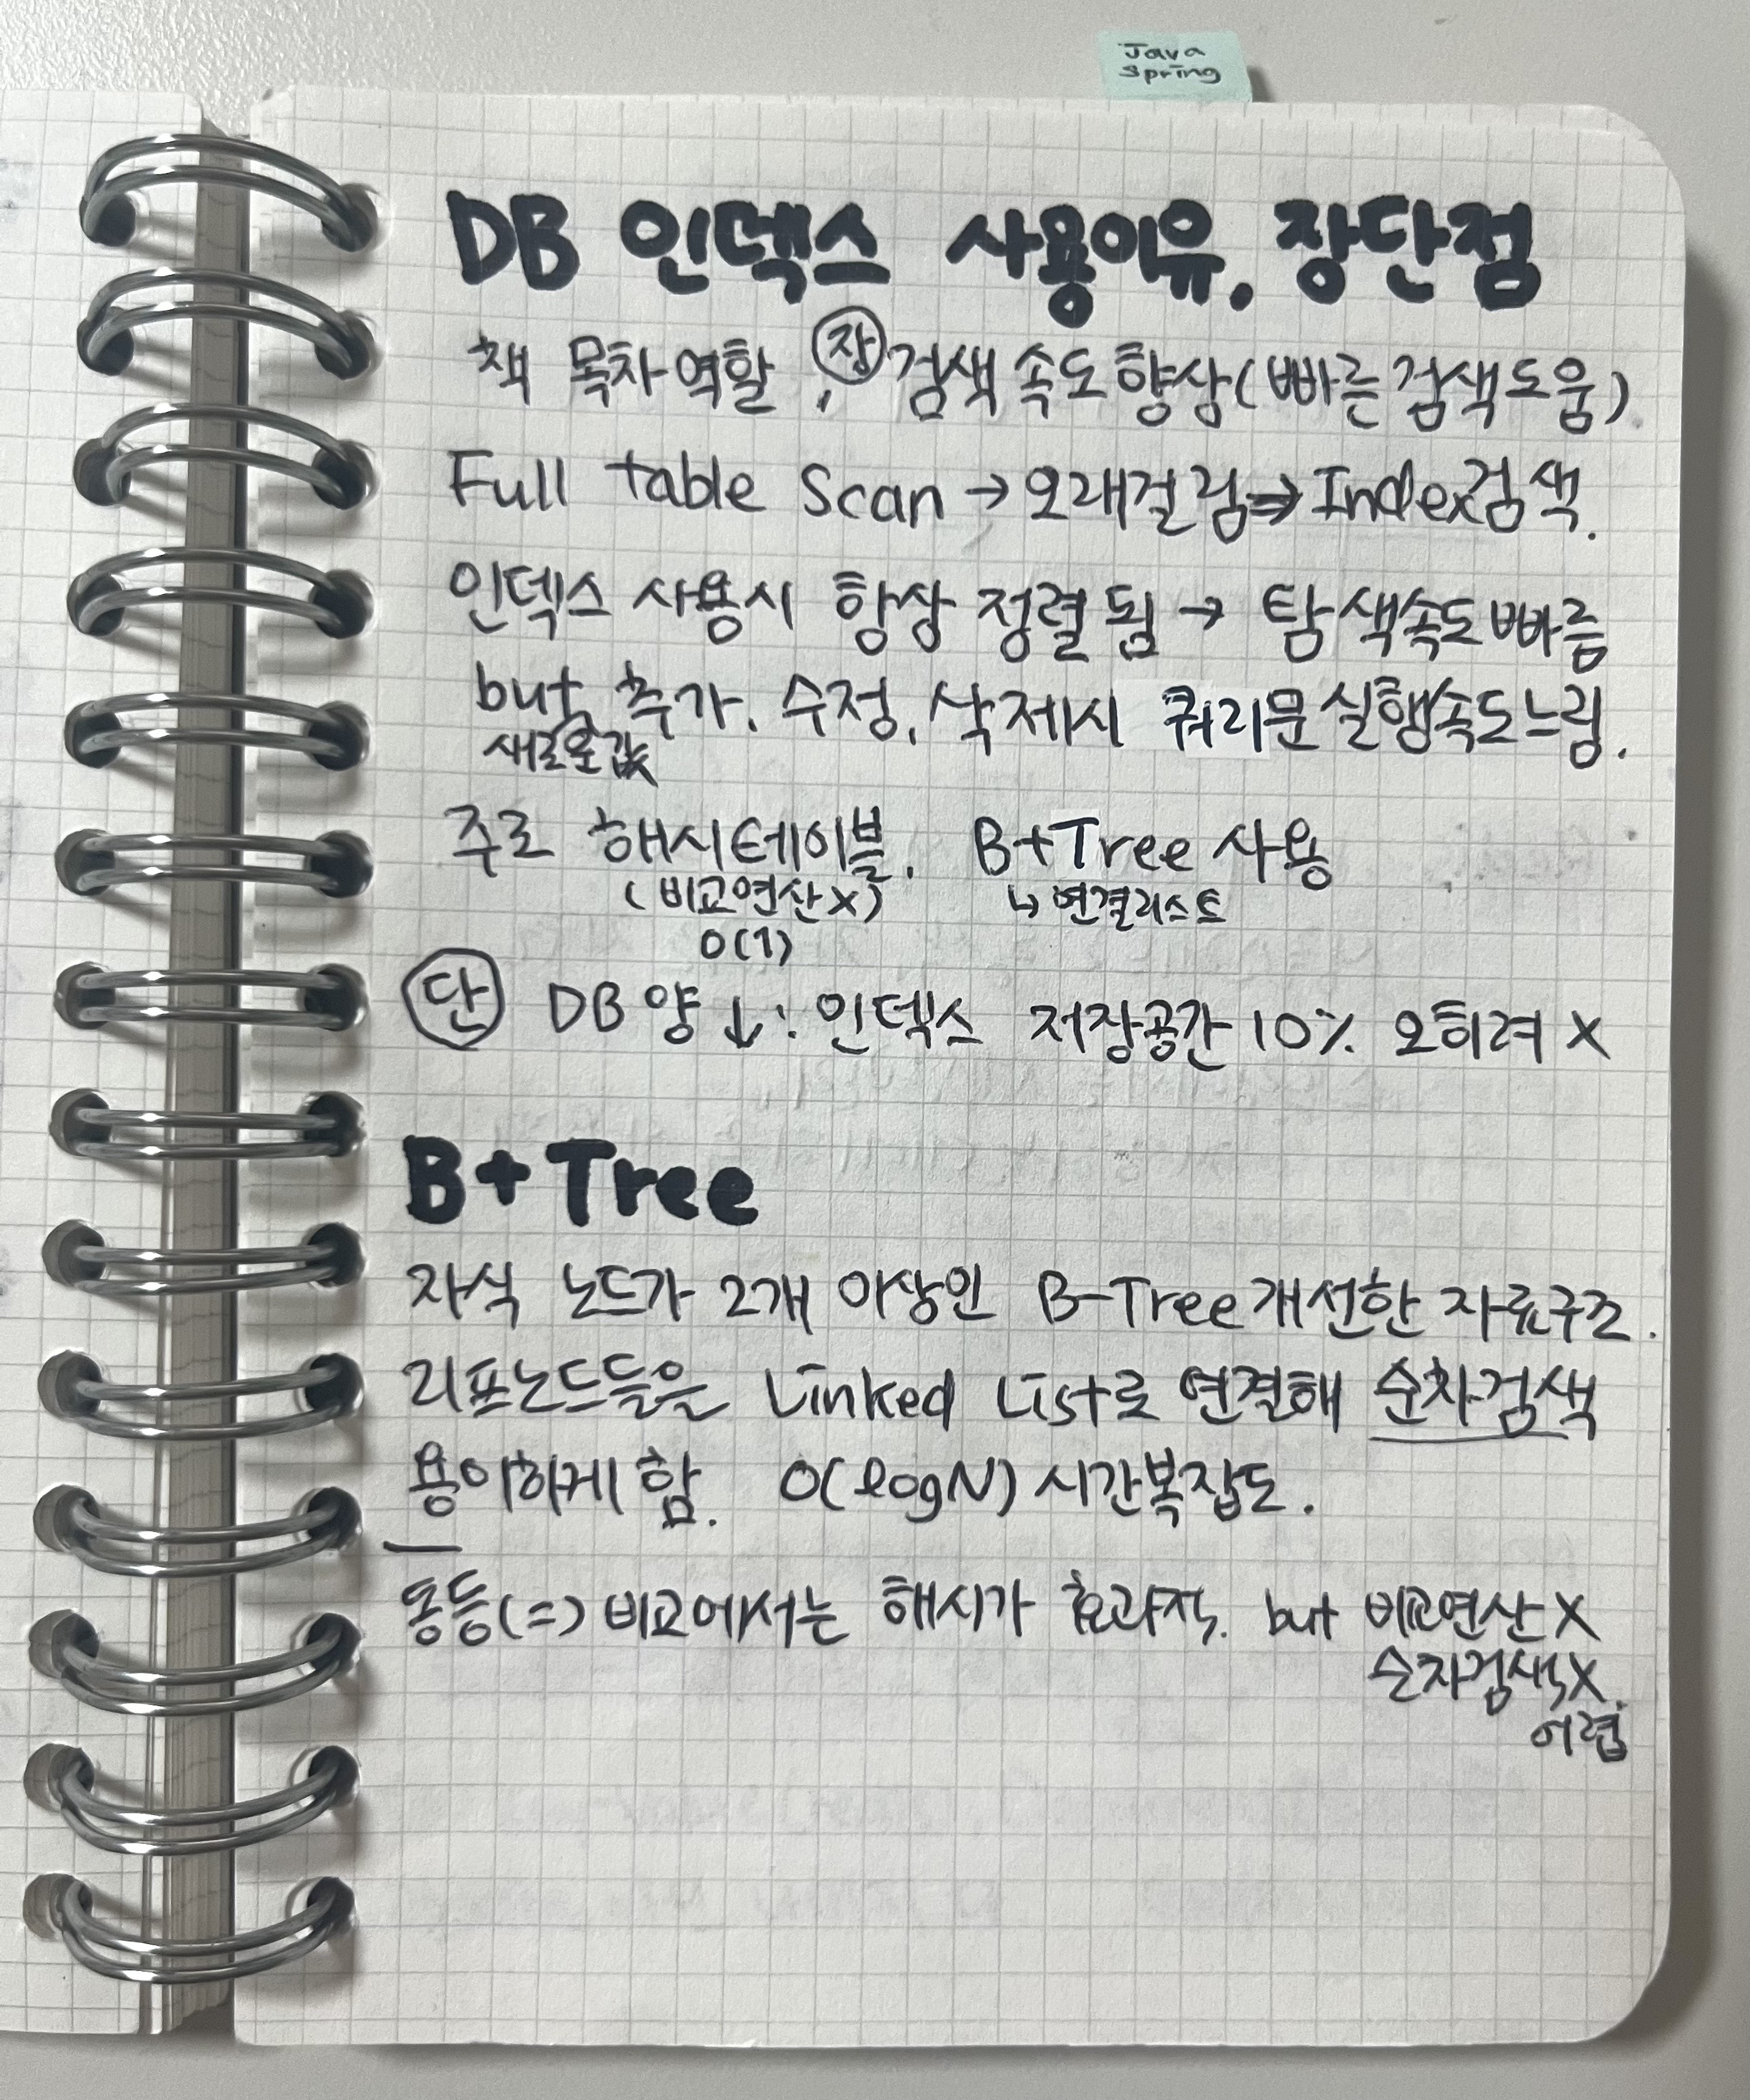 Java
Spring
DB 인덱스 사용이유, 장단점
책 목차 역할, 장 검색 속도 향상(빠른 검색 도움)
Full table Scan → 오래걸림 ⇒ Index 검색.
인덱스 사용시 항상 정렬됨 → 탐색속도 빠름
but 추가, 수정, 삭제시 쿼리문 실행속도 느림.
새로운 값
주로 해시테이블, B+Tree 사용
(비교연산 X) ↳ 연결리스트
O(1)
단 DB 양 ↓: 인덱스 저장공간 10% 오히려 X
B+Tree
자식 노드가 2개 이상인 B-Tree 개선한 자료구조.
리프노드들을 Linked List로 연결해 순차검색
용이하게 함. O(logN) 시간복잡도.
동등(=) 비교에서는 해시가 효과적. but 비교연산 X
순차검색 X.
어렵